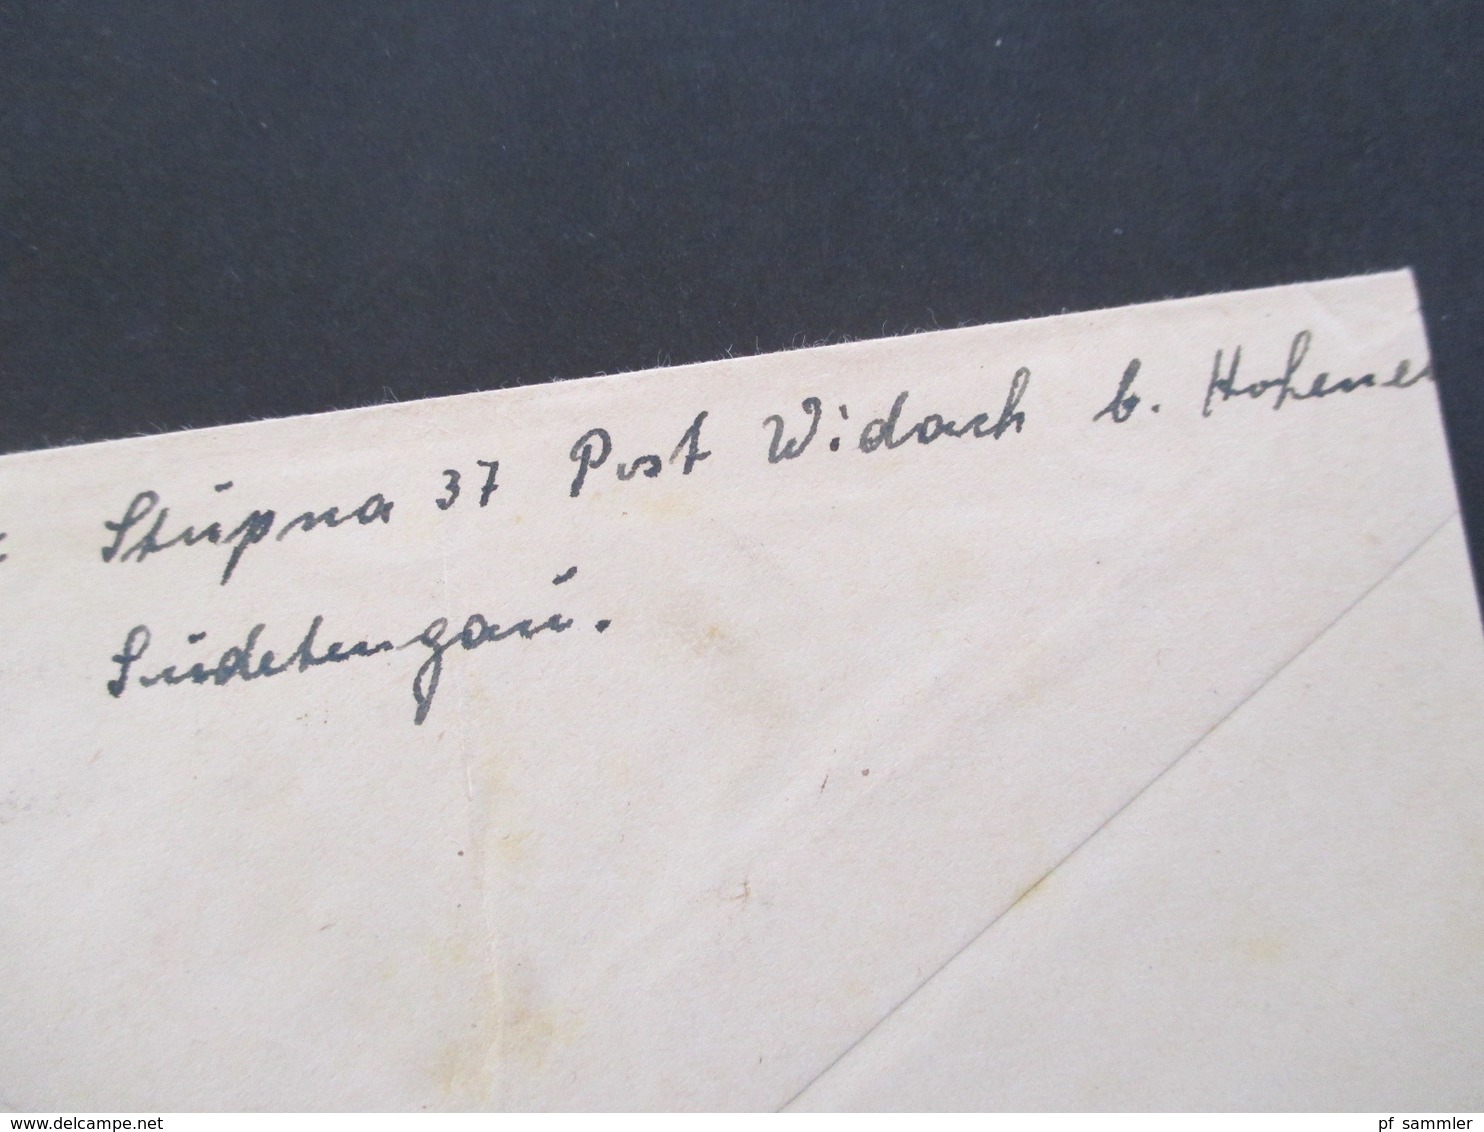 : Stupna 37 Post Widach b. Hohene
Sudetengau.
© delcampe.net
pf_sammler